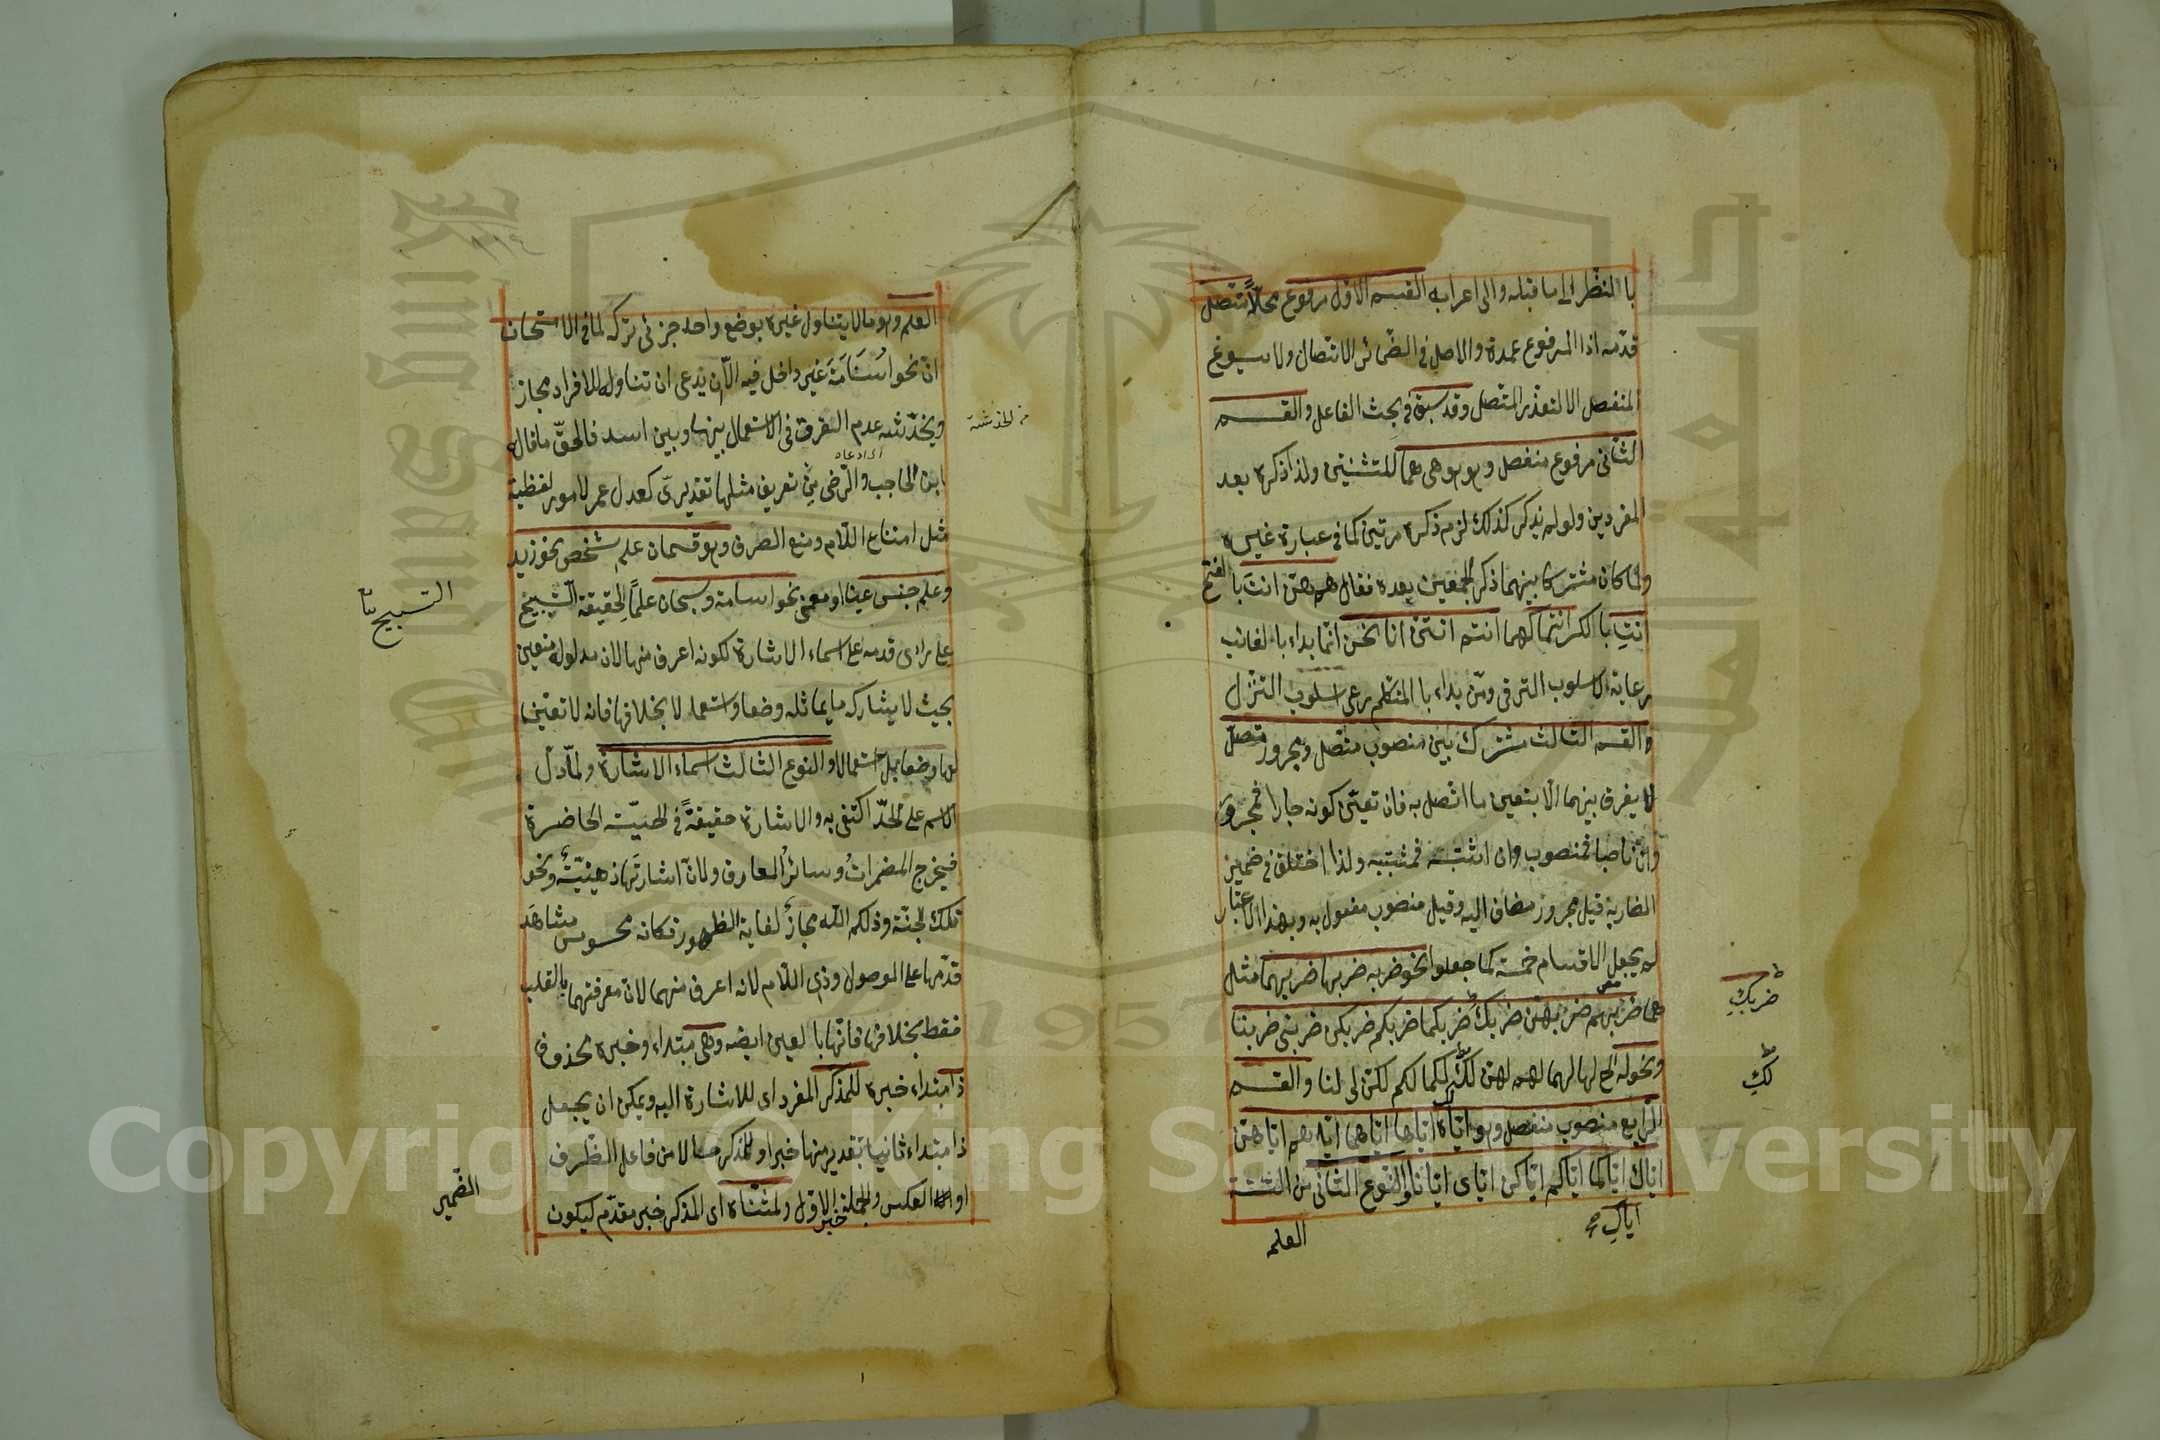 بالنظر الى ما قبله والى اعرابه القسم الاول مرفوع محلًا متصل
قدّمه اذا المرفوع عمدة والاصل في الضمائر الاتصال ولا يسوغ
المنفصل الا لتعذر المتصل وقد سبق في بحث الفاعل والقسم
الثاني مرفوع منفصل وهو هو هى هما للمتثنيتين ولذا ذكره بعد
المفردين ولو لم يذكر كذلك لزم ذكره مرتين كما في عبارة غيره
ولما كان مشتركا بينهما ذكر الجمعين بعده فقال هم هن انتَ بالفتح
انتِ بالكسر انتما كهما انتم انتنّ انا نحن انما بداء بالغائب
رعاية لاسلوب الترقى ومن بداء بالمتكلم رعى اسلوب التنزل
والقسم الثالث مشترك بين منصوب متصل ومجرور متصل
لا يفرق بينهما الا بتعيين ما اتصل به فان تعيّن كونه جارا فمجرور
وان ناصبا فمنصوب وان اشتبه فمشتبه ولذا اختلف في ضمير
الضاربة قيل مجرور مضاف اليه وقيل منصوب مفعول به وبهذا الاعتبار
لم يجعل الاقسام خمسة كما جعلوا نحو ضربه ضربها ضربهما مثل
هما ضربهم ضربهن ضربك ضربكما ضربكم ضربكن ضربنى ضربنا
ونحو له الخ لها لهما لهم لهن لك لكما لكم لكن لى لنا والقسم
الرابع منصوب منفصل وهو ايّاه ايّاها ايّاهما ايّاهم ايّاهنّ
ايّاك ايّاكما ايّاكم ايّاكن ايّاى ايّانا والنوع الثاني من الستة
اياكِ صح
العلم
ضربكِ
لكِ
العلم وهو ما لا يتناول غيره بوضع واحد جزئى تركه لما في الامتحان
ان نحو اسَامَة غير داخل فيه الا ان يدعى ان تناوله للافراد مجاز
ويخدشه عدم التفرقة في الاستعمال بينها وبين اسد فالحقّ ما قاله
ابن الحاجب والرضى من تعريف مثلها تقديرىّ كعدل عمر لامور لفظية
مثل امتناع اللام ومنع الصرف وهو قسمان علم شخص نحو زيد
وعلم جنس عينا او معنى نحو اسامة وسبحان علمًا لحقيقة التسبيح
على رأى قدمه على اسماء الاشارة لكونه اعرف منها لان مدلوله متعين
بحيث لا يشاركه ما يماثله وضعا واستعمالا بخلافها فانه لا تعين
لها وضعا بل استعمالا والنوع الثالث اسماء الاشارة ولما دل
الاسم على الحدّ اكتفى به والاشارة حقيقةً في الحسّية الحاضرة
فيخرج المضمراتُ وسائرُ المعارف ولانّ اشارتَها ذهنيّةٌ ونحو
تلك الجنّة وذلكم الله مجازٌ لغاية الظهور فكانه محسوس مشاهد
قدّمها على الموصول وذى اللام لانه اعرف منهما لان معرفتهما بالقلب
فقط بخلافها فانها بالعين ايضه وهى مبتداء وخبره محذوف
ذا مبتداء خبره للمذكر المفرد اى للاشارة اليه ويمكن ان يجعل
ذا مبتداء ثانيا بتقدير منها خبرا وللمذكر حالا من فاعل الظرف
او العكس والجملة خبر الاول ولمثنّاه اى المذكر خبر مقدّم ليكون
التسبيح
الضمير